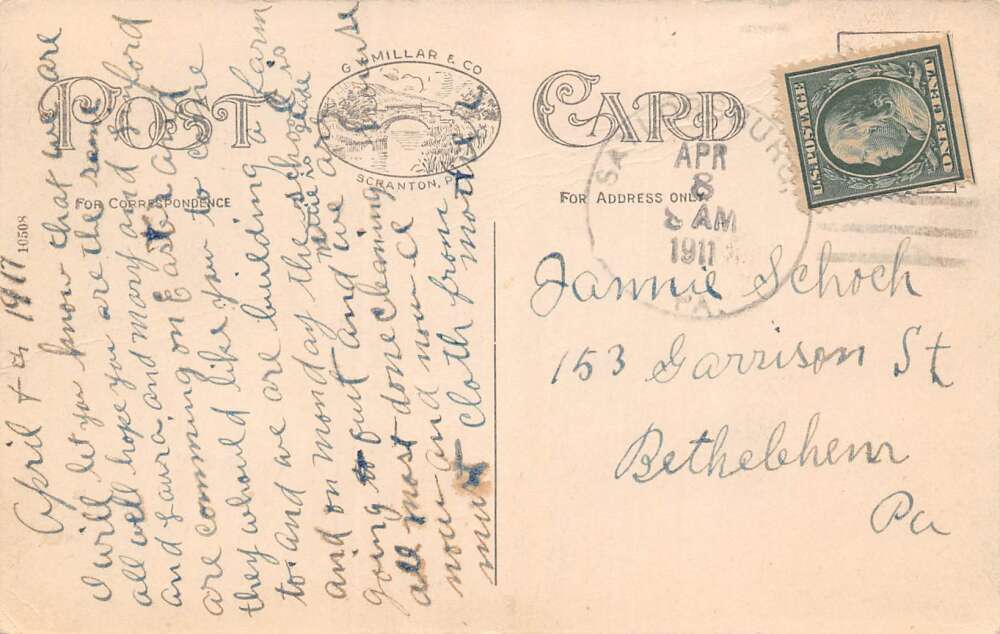 POST CARD
G. MILLAR & CO
SCRANTON, PA
FOR CORRESPONDENCE
FOR ADDRESS ONLY
10508
U.S. POSTAGE
ONE CENT
APR
8
8 AM
1911
PA.
April 1911
I will let you know that we are
all well hope you are the same
and Laura and Mary and Liford
are comming on Easter and
they whould like you to come
to and we are building a farm
and on monday the school is
going to quit and we are
all most done cleaning house
now and now I
must cloth from mother
Jannie Schoch
153 Garrison St
Bethelehem
Pa